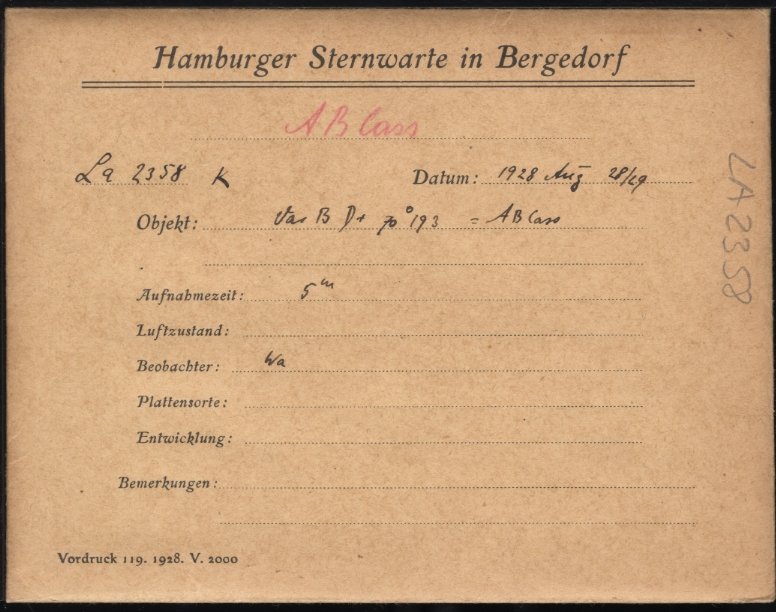 Hamburger Sternwarte in Bergedorf
AB Cass
La 2358 K
Datum: 1928 Aug 28/29
Objekt: Var BD + 70° 193 = AB Cass
Aufnahmezeit: 5m
Luftzustand:
Beobachter: Wa
Plattensorte:
Entwicklung:
Bemerkungen:
Vordruck 119. 1928. V. 2000
LA 2358